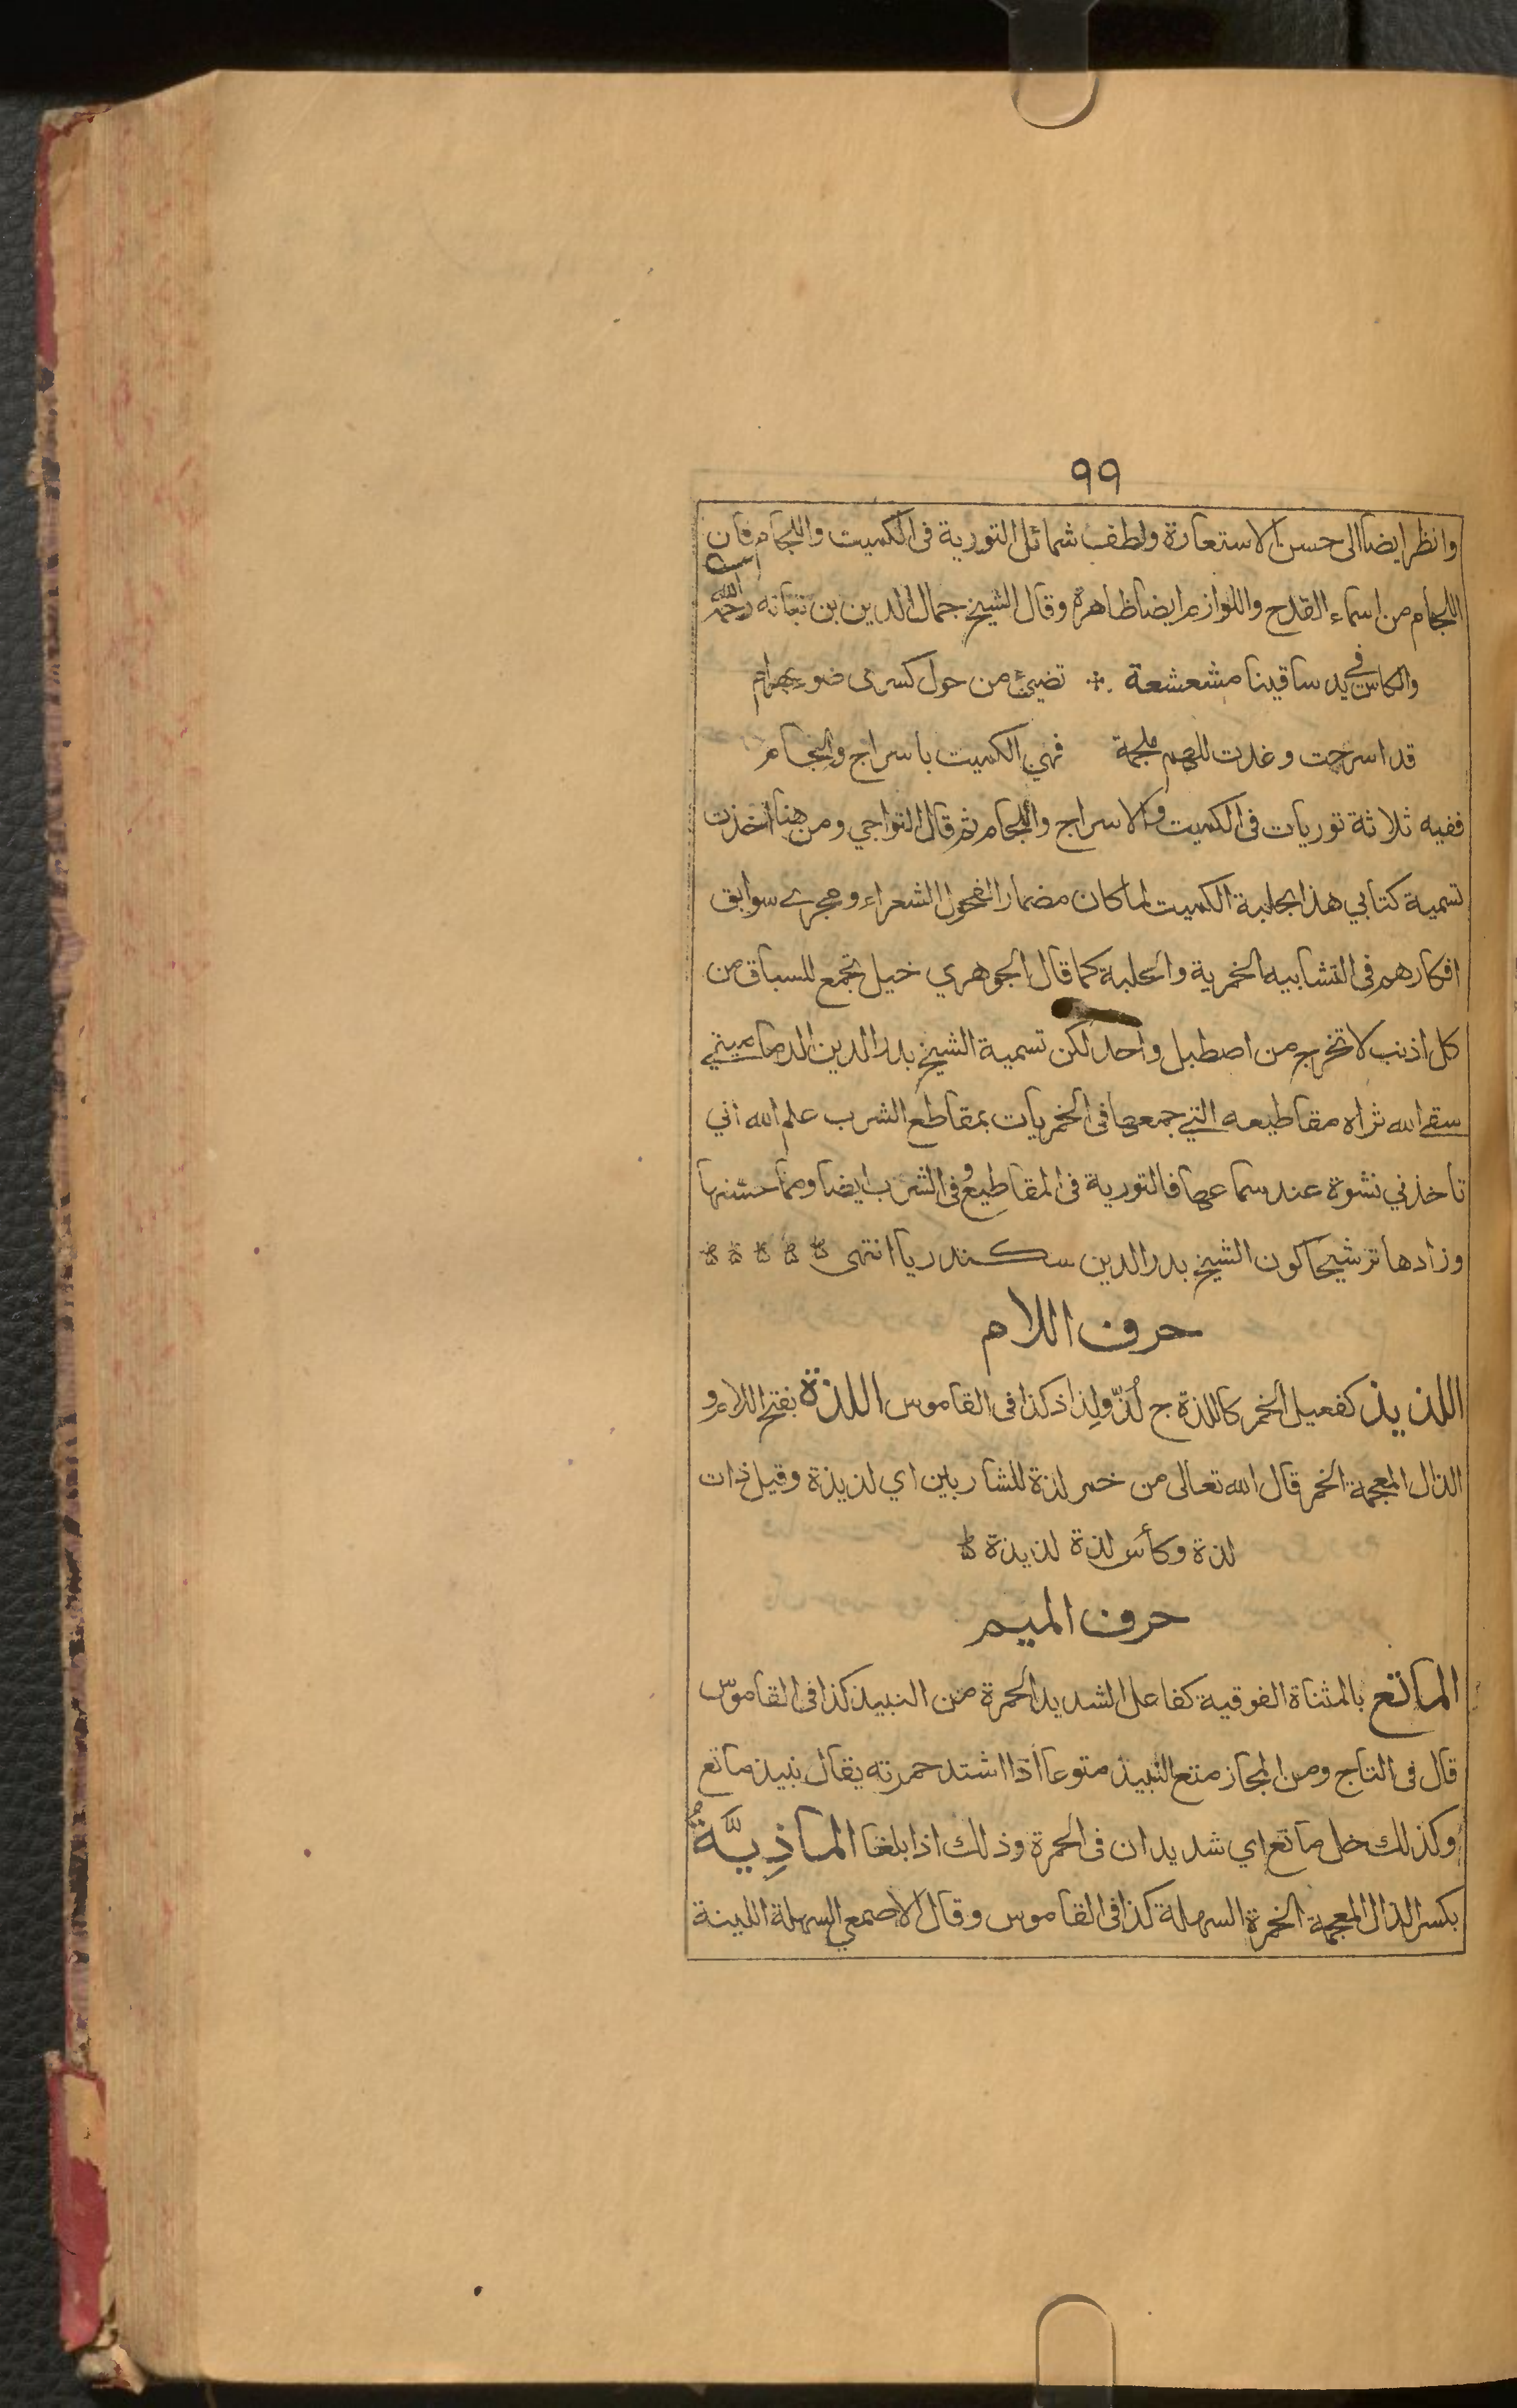 ٩٩
وانظر ايضا الى حسن الاستعارة ولطف شمائل التورية فى الكميت واللجام فان
اللجام من اسماء القدح واللوازم ايضا ظاهرة وقال الشيخ جمال الدين بن نباته رحمه الله
والكاس فى يد ساقينا مشعشعة ∴ تضيئ من حول كسرى ضوء بهرام
قد اسرجت وغدت للهم ملجمة فهي الكميت باسراج والجام
ففيه ثلاثة توريات فى الكميت والاسراج واللجام ثم قال النواجي ومن هنا اخذت
تسمية كتابي هذا بحلبة الكميت لما كان مضمار الفحول الشعراء ومجرى سوابق
افكارهم فى التشابيه الخمرية والحلبة كما قال الجوهري خيل تجمع للسباق من
كل اذنب لا تخرج من اصطبل واحد لكن تسمية الشيخ بدر الدين الدماميني
سقى الله ثراه مقاطيعه التي جمعها فى الخمريات بمقاطع الشرب علم الله اني
تاخذني نشوة عند سماعها فالتورية فى المقاطيع وفى الشرب ايضا ومما حسنها
وزادها ترشيحا كون الشيخ بدر الدين سكندريا انتهى
حرف اللام
اللذيذ كفعيل الخمر كاللذة ج لُذّ ولِذاذ كذا فى القاموس اللذة بفتح اللام و
الذال المعجمة الخمر قال الله تعالى من خمر لذة للشاربين اي لذيذة وقيل ذات
لذة وكأس لذة لذيذة
حرف الميم
الماتع بالمثناة الفوقية كفاعل الشديد الحمرة من النبيذ كذا فى القاموس
قال فى التاج ومن المجاز متع النبيذ متوعا اذا اشتد حمرته يقال نبيذ ماتع
وكذلك خل ماتع اي شديدان فى الحمرة وذلك اذا بلغا الماذِيَّةُ
بكسر الذال المعجمة الخمرة السهلة كذا فى القاموس وقال الاصمعي السهلة اللينة